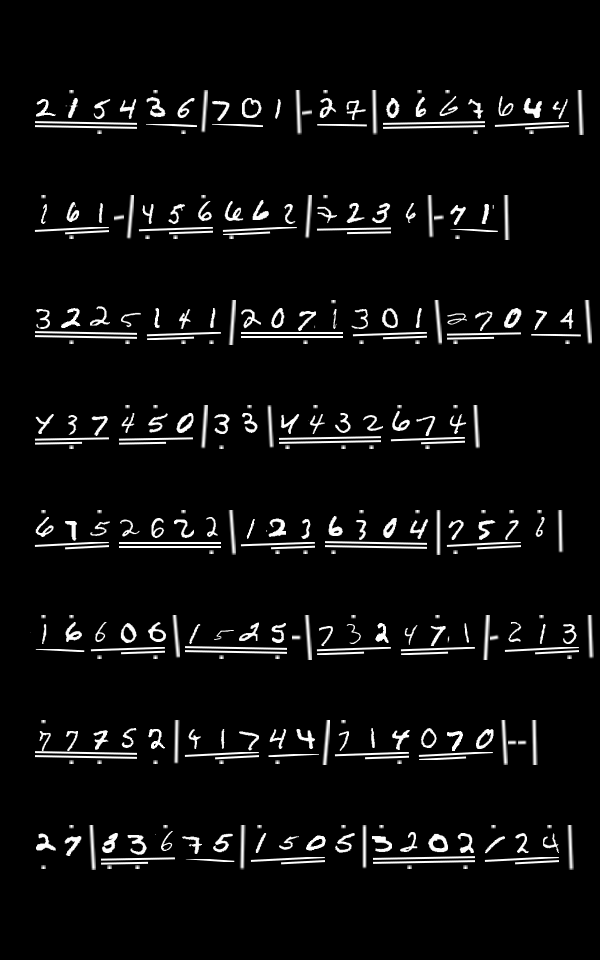 2154 36|701|-27|0667 644|
161-|456 662|7236|-71|
3225 141|2071 301|27074|
437 450|33|4432 674|
675 2622|123 6304|757 8|
16 606|1525-|732 471|-213|
77752|417 44|714 070|--|
27|33675|150 5|3202 124|